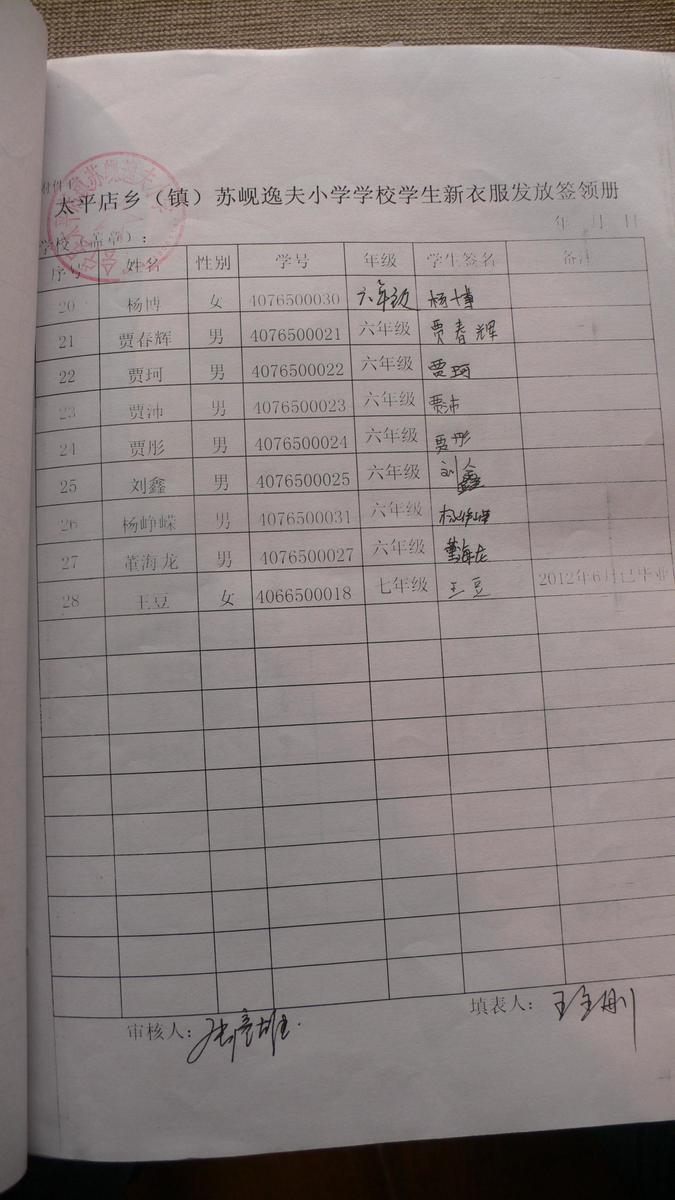 附件1
太平店乡（镇）苏岘逸夫小学学校学生新衣服发放签领册
年 月 日
学校（盖章）：
序号 姓名 性别 学号 年级 学生签名 备注
20 杨博 女 4076500030 六年级 杨博
21 贾春辉 男 4076500021 六年级 贾春辉
22 贾珂 男 4076500022 六年级 贾珂
23 贾沛 男 4076500023 六年级 贾沛
24 贾彤 男 4076500024 六年级 贾彤
25 刘鑫 男 4076500025 六年级 刘鑫
26 杨峥嵘 男 4076500031 六年级 杨峥嵘
27 董海龙 男 4076500027 六年级 董海龙
28 王豆 女 4066500018 七年级 王豆 2012年6月已毕业
填表人：
审核人：